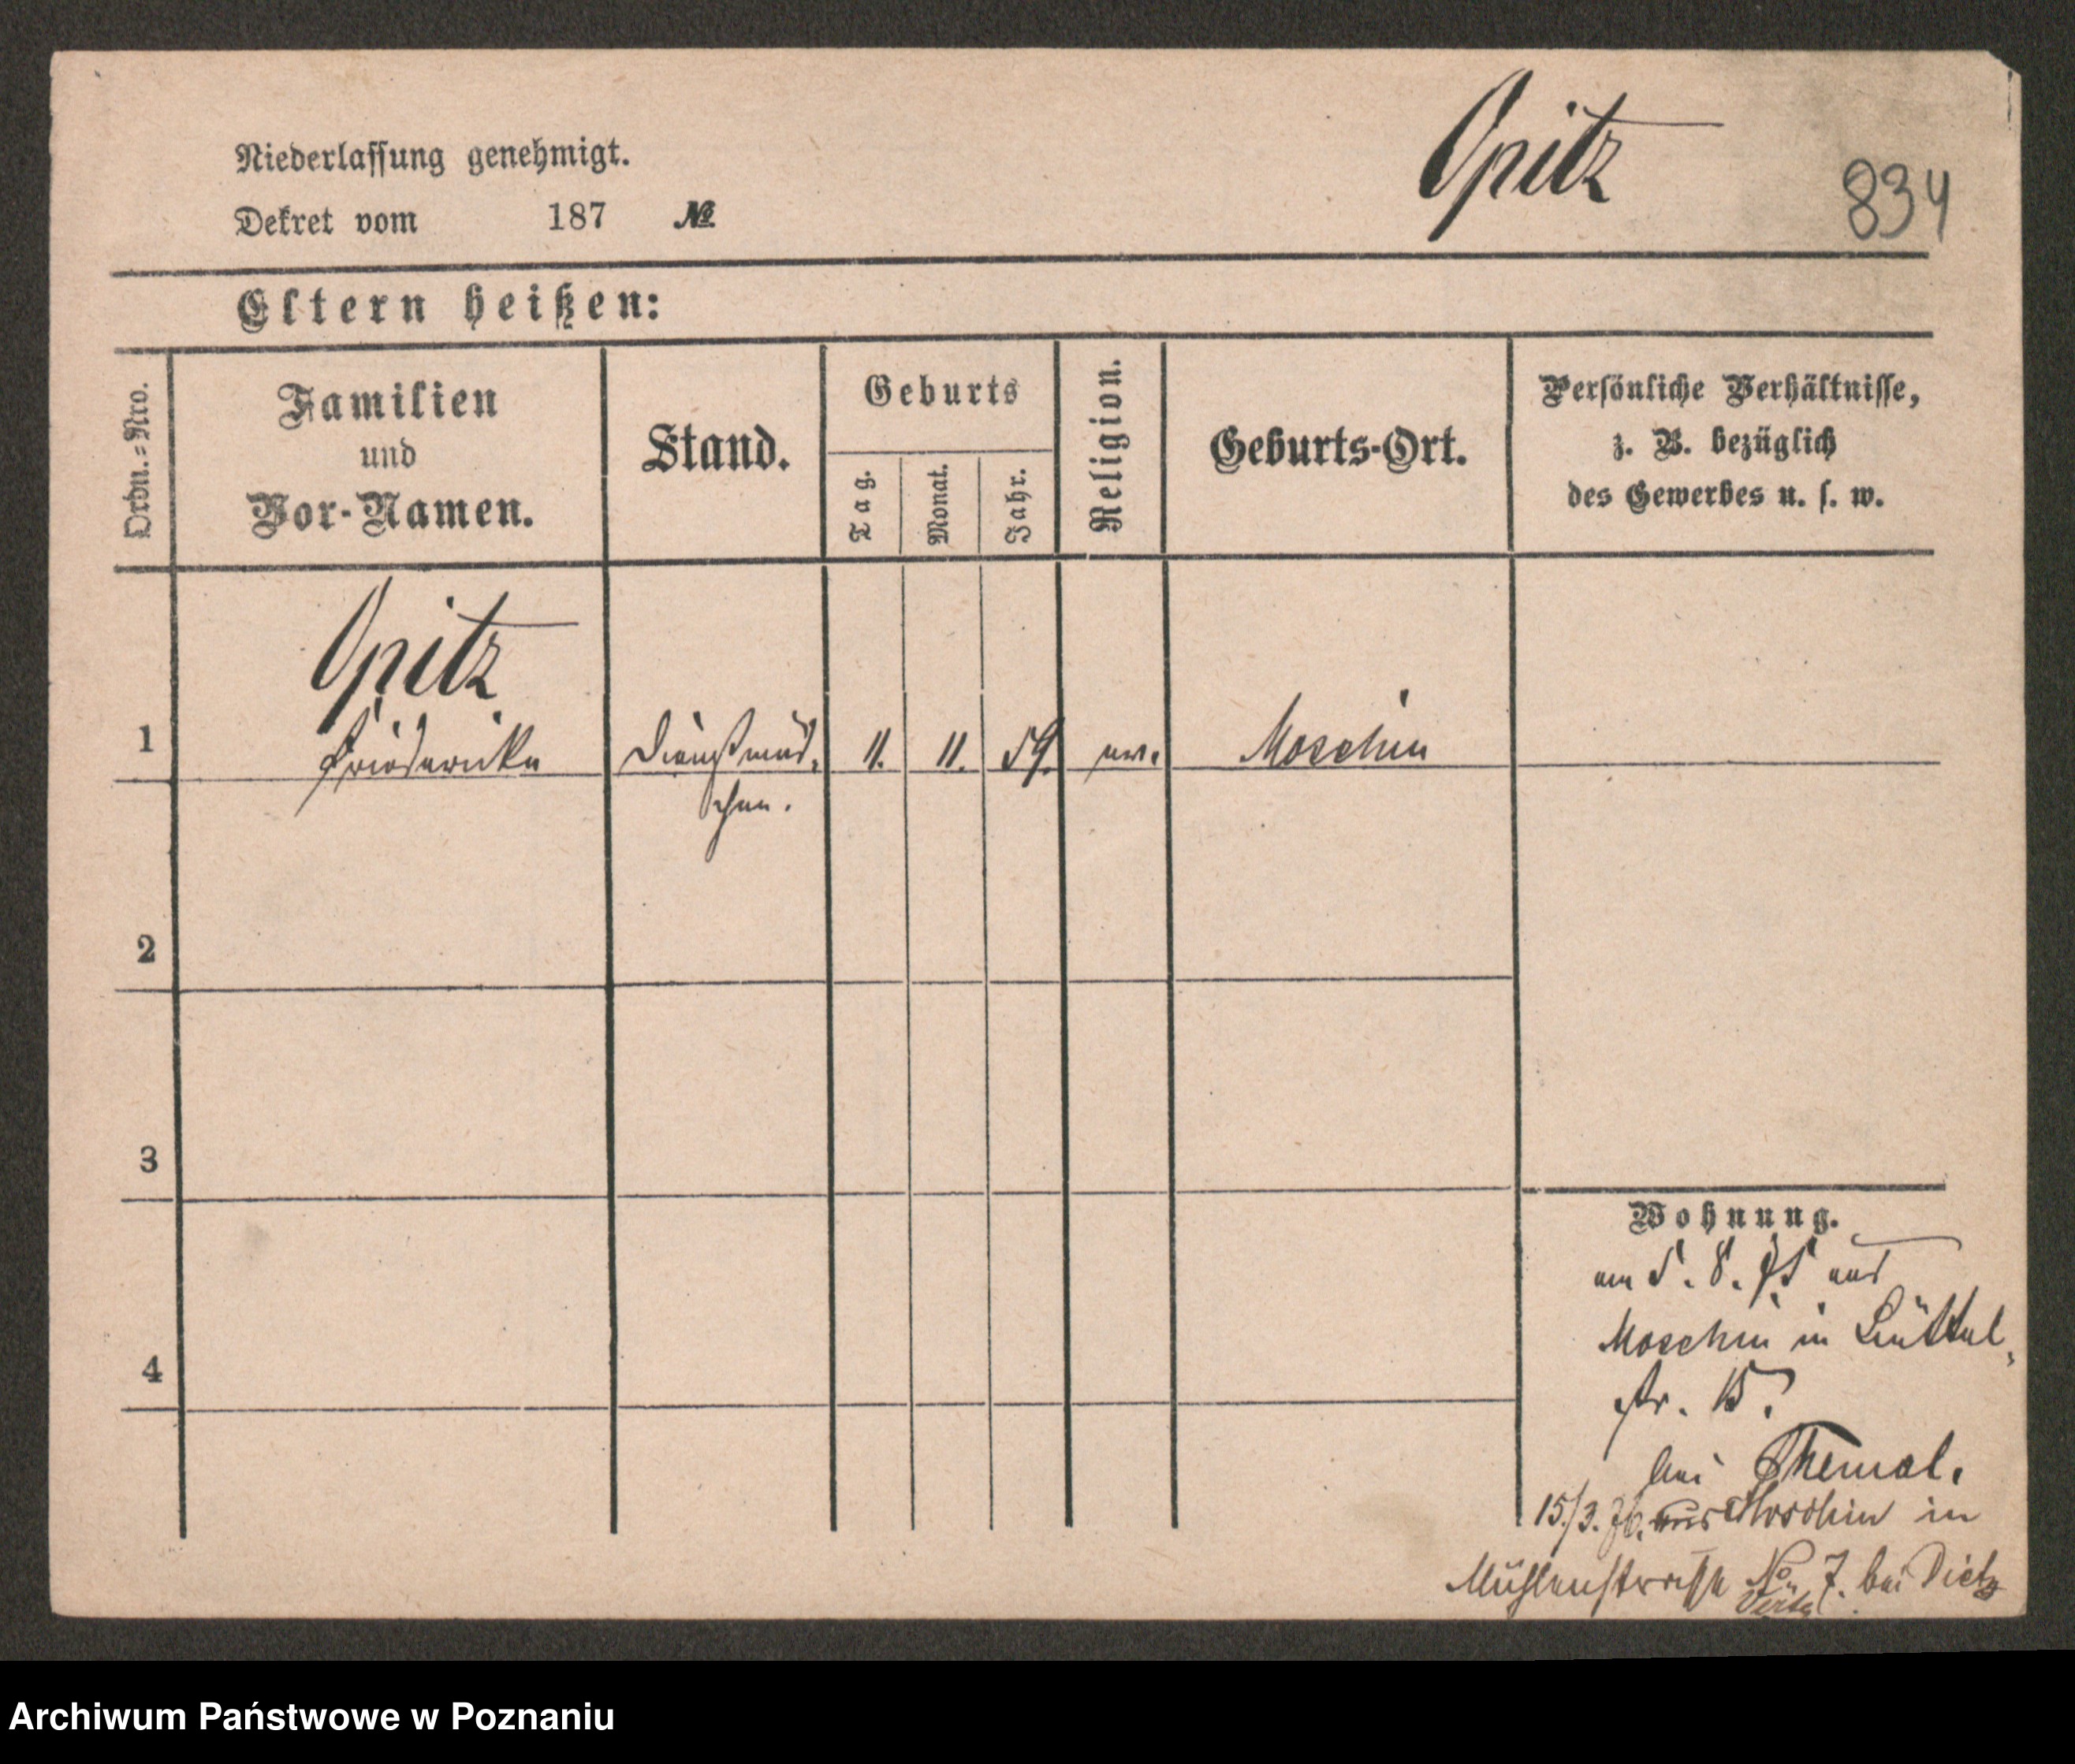 Opitz
834
Niederlassung genehmigt.
Dekret vom 187 №
Eltern heißen:
Ordn.=Nro.
Familien
und
Vor-Namen.
Stand.
Geburts
Tag.
Monat.
Jahr.
Religion.
Geburts-Ort.
Persönliche Verhältnisse,
z. B. bezüglich
des Gewerbes u. s. w.
Opitz
1 Friederike Dienstmäd- 11. 11. 59. ev. Moschin
chen.
2
3
4
Wohnung.
am 5. 8. 75 aus
Moschin in Büttel-
str. 15.
bei Themal.
15/3. 76. aus Moschin in
Mühlenstraße No 7. bei Dietz